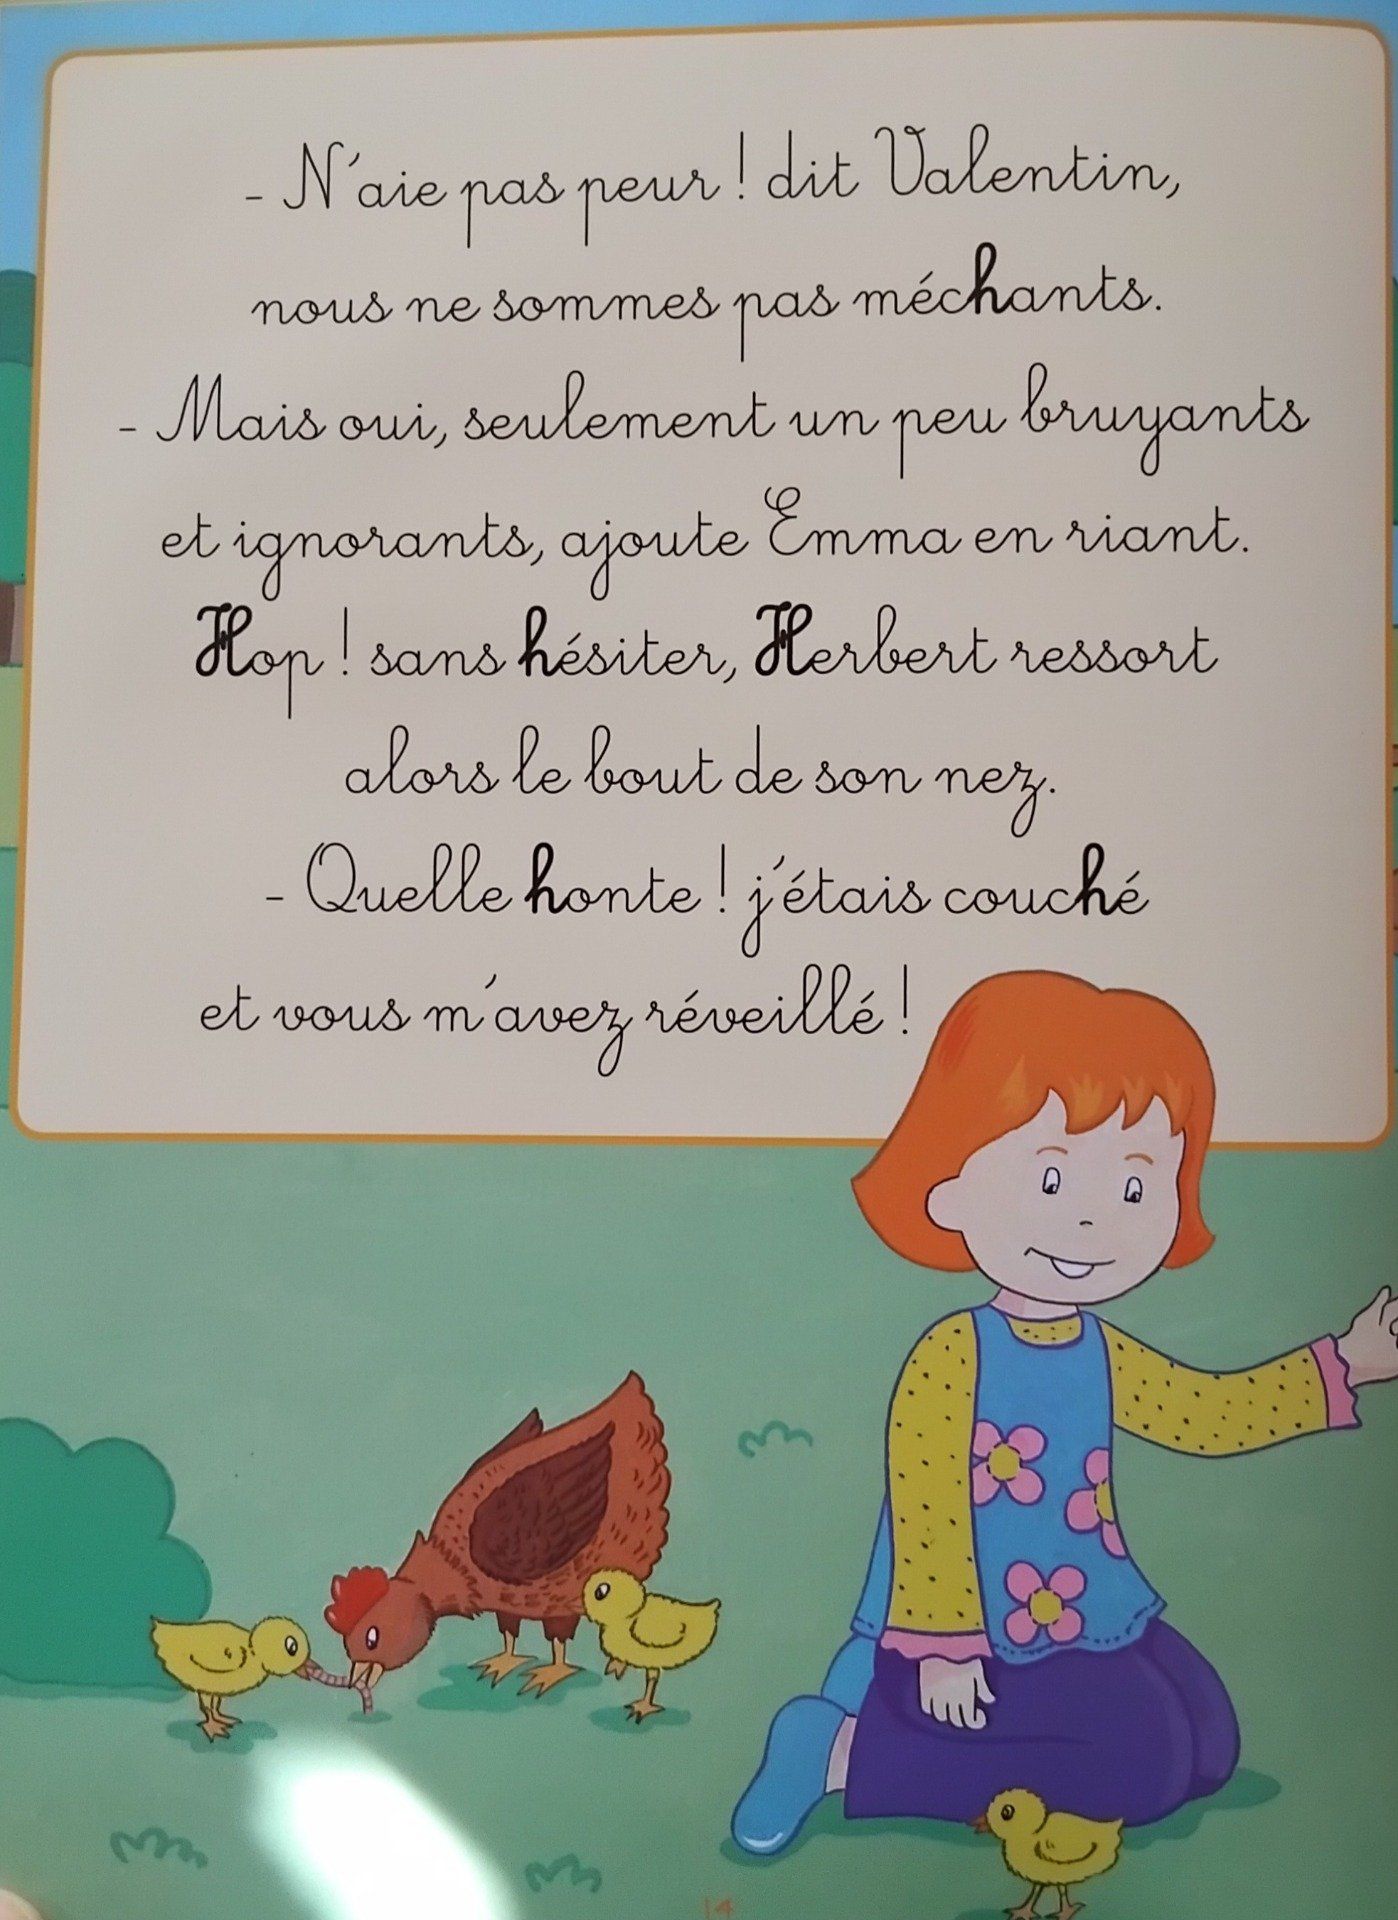 - N'aie pas peur ! dit Valentin,
nous ne sommes pas méchants.
- Mais oui, seulement un peu bruyants
et ignorants, ajoute Emma en riant.
Hop ! sans hésiter, Herbert ressort
alors le bout de son nez.
- Quelle honte ! j'étais couché
et vous m'avez réveillé !
14